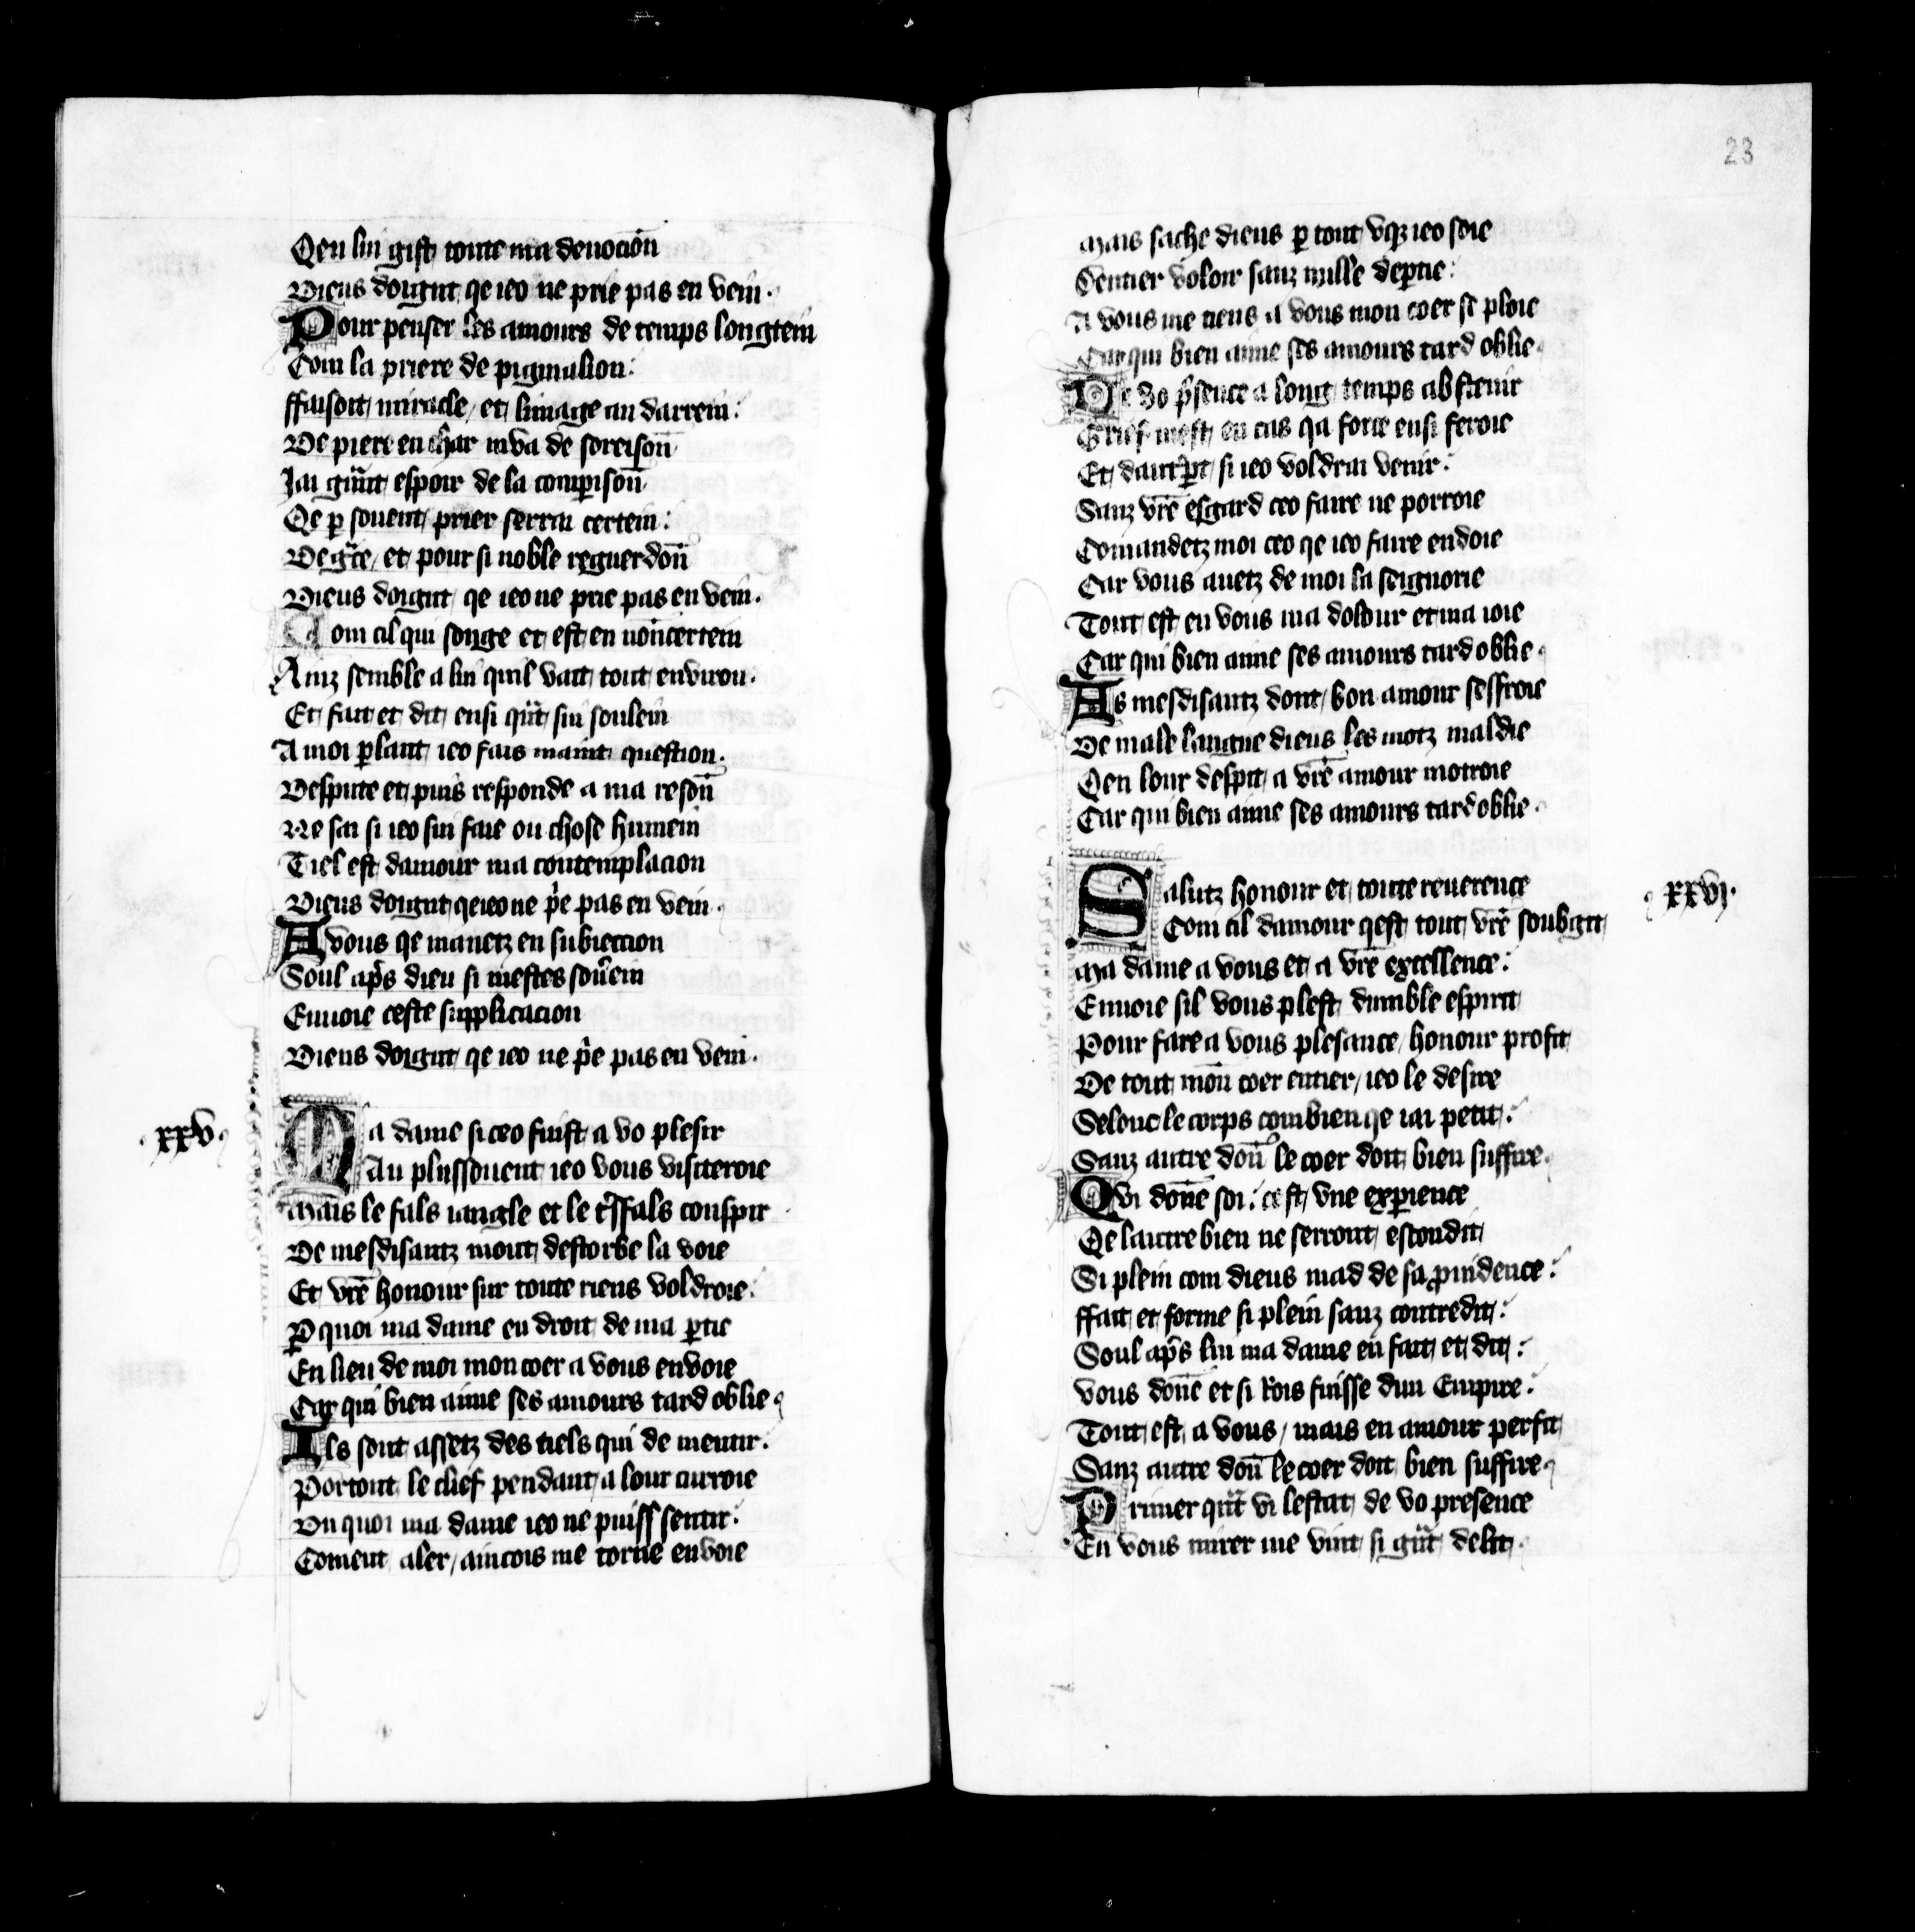 Qen lui gist toute ma deuocion̄
Dieus doignt qe ieo ne prie pas en vein.
Pour penser les amours de temps longtein
Com la priere de pigmalion:
ffaisoit miracle, et limage au darrein:
De piere en char mua de soreison̄
Iai grāt espoir de la comparison̄
Qe ꝑ souent prier serrai certein:
De grāce, et pour si noble reguerdon̄
Dieus doignt qe ieo ne prie pas en vein.
Com cil qui songe et est en non̄certein
Ainz semble a lui quil vait tout enviroun.
Et fait et dit ensi qāt sui soulein
A moi ꝑlant ieo fais maint question.
Despute et puis responde a ma reson̄
Ne sai si ieo sui faie ou chose humein
Tiel est damour ma contemplacion
Dieus doignt qe ieo ne pͥe pas en vein.
A vous qe manetz en subieccion
Soul apͥs dieu si mestes sou͛ein
Envoie ceste supplicacion
Dieus doignt qe ieo ne pͥe pas en vein.
.xxv.
Ma dame si ceo fuist a vo plesir
Au plussouent ieo vous visiteroie
Mais le fals iangle et le tͬsfals conspir
De mesdisantz mout destorbe la voie
Et vrē honour sur toute riens voldroie:
ꝑquoi ma dame en droit de ma ꝑtie
En lieu de moi mon coer a vous envoie
Car qui bien aime ses amours tard oblie.
Ils sont assetz des tiels qui de mentir.
Portont le clief pendant a lour curroie
Du quoi ma dame ieo ne puiss sentir.
Coment aler, aincois me torne envoie
23
Mais sache dieus ꝑ tout vqꝫ ieo soie
Dentier voloir sanz nulle deꝑtie:
A vous me tiens a vous mon coer se ploie
Car qui bien aime ses amours tard oblie.
De vo pͥsence a long temps abstenir
Grief mest en cas qa force ensi feroie
Et dautꝑt si ieo voldrai venir.
Sanz vrē esgard ceo faire ne porroie
Comandetz moi ceo qe ieo faire en doie
Car vous auetz de moi la seignorie
Tout est en vous ma dolour et ma ioie
Car qui bien aime ses amours tard oblie.
As mesdisantz dont bon amour seffroie
De male langue dieus les motz maldie
Qen lour despit a vrē amour motroie
Car qui bien aime ses amours tard oblie.
.xxvi.
Salutz honour et toute reuerence
Com cil damour qest tout vrē soubgit
Ma dame a vous et a vrē excellence:
Envoie sil vous plest dumble espirit
Pour fare a vous plesance, honour profit
De tout mon̄ coer entier, ieo le desire
Selonc le corps combien qe iai petit:
Sanz autre don̄ le coer doit bien suffire.
Qui don̄e soi: cest vne exꝑience
Qe lautre bien ne serront escondit
Si plein com dieus mad de sa ꝓuidence:
ffait et forme si plein sanz contredit:
Soul apͥs lui ma dame en fait et dit:
Vous don̄e et si Rois fuisse dun Empire:
Tout est a vous, mais en amour perfit
Sanz autre don̄ le coer doit bien suffire.
Primer qāt vi lestat de vo presence
En vous mirer me vint si grāt delit.